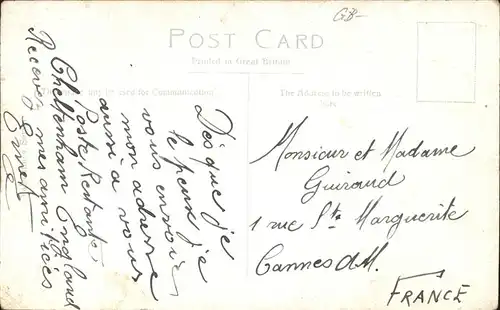 GB-
POST CARD
Printed in Great Britain
may be used for Communication
The Address to be written
Dès que je
le peux je
vous envoie
mon adresse
aussi à vous
Poste Restante
Cheltenham England
Recevez mes amitiés
Ernest
Monsieur et Madame
Guiraud
1 rue Ste Marguerite
Cannes AM.
FRANCE